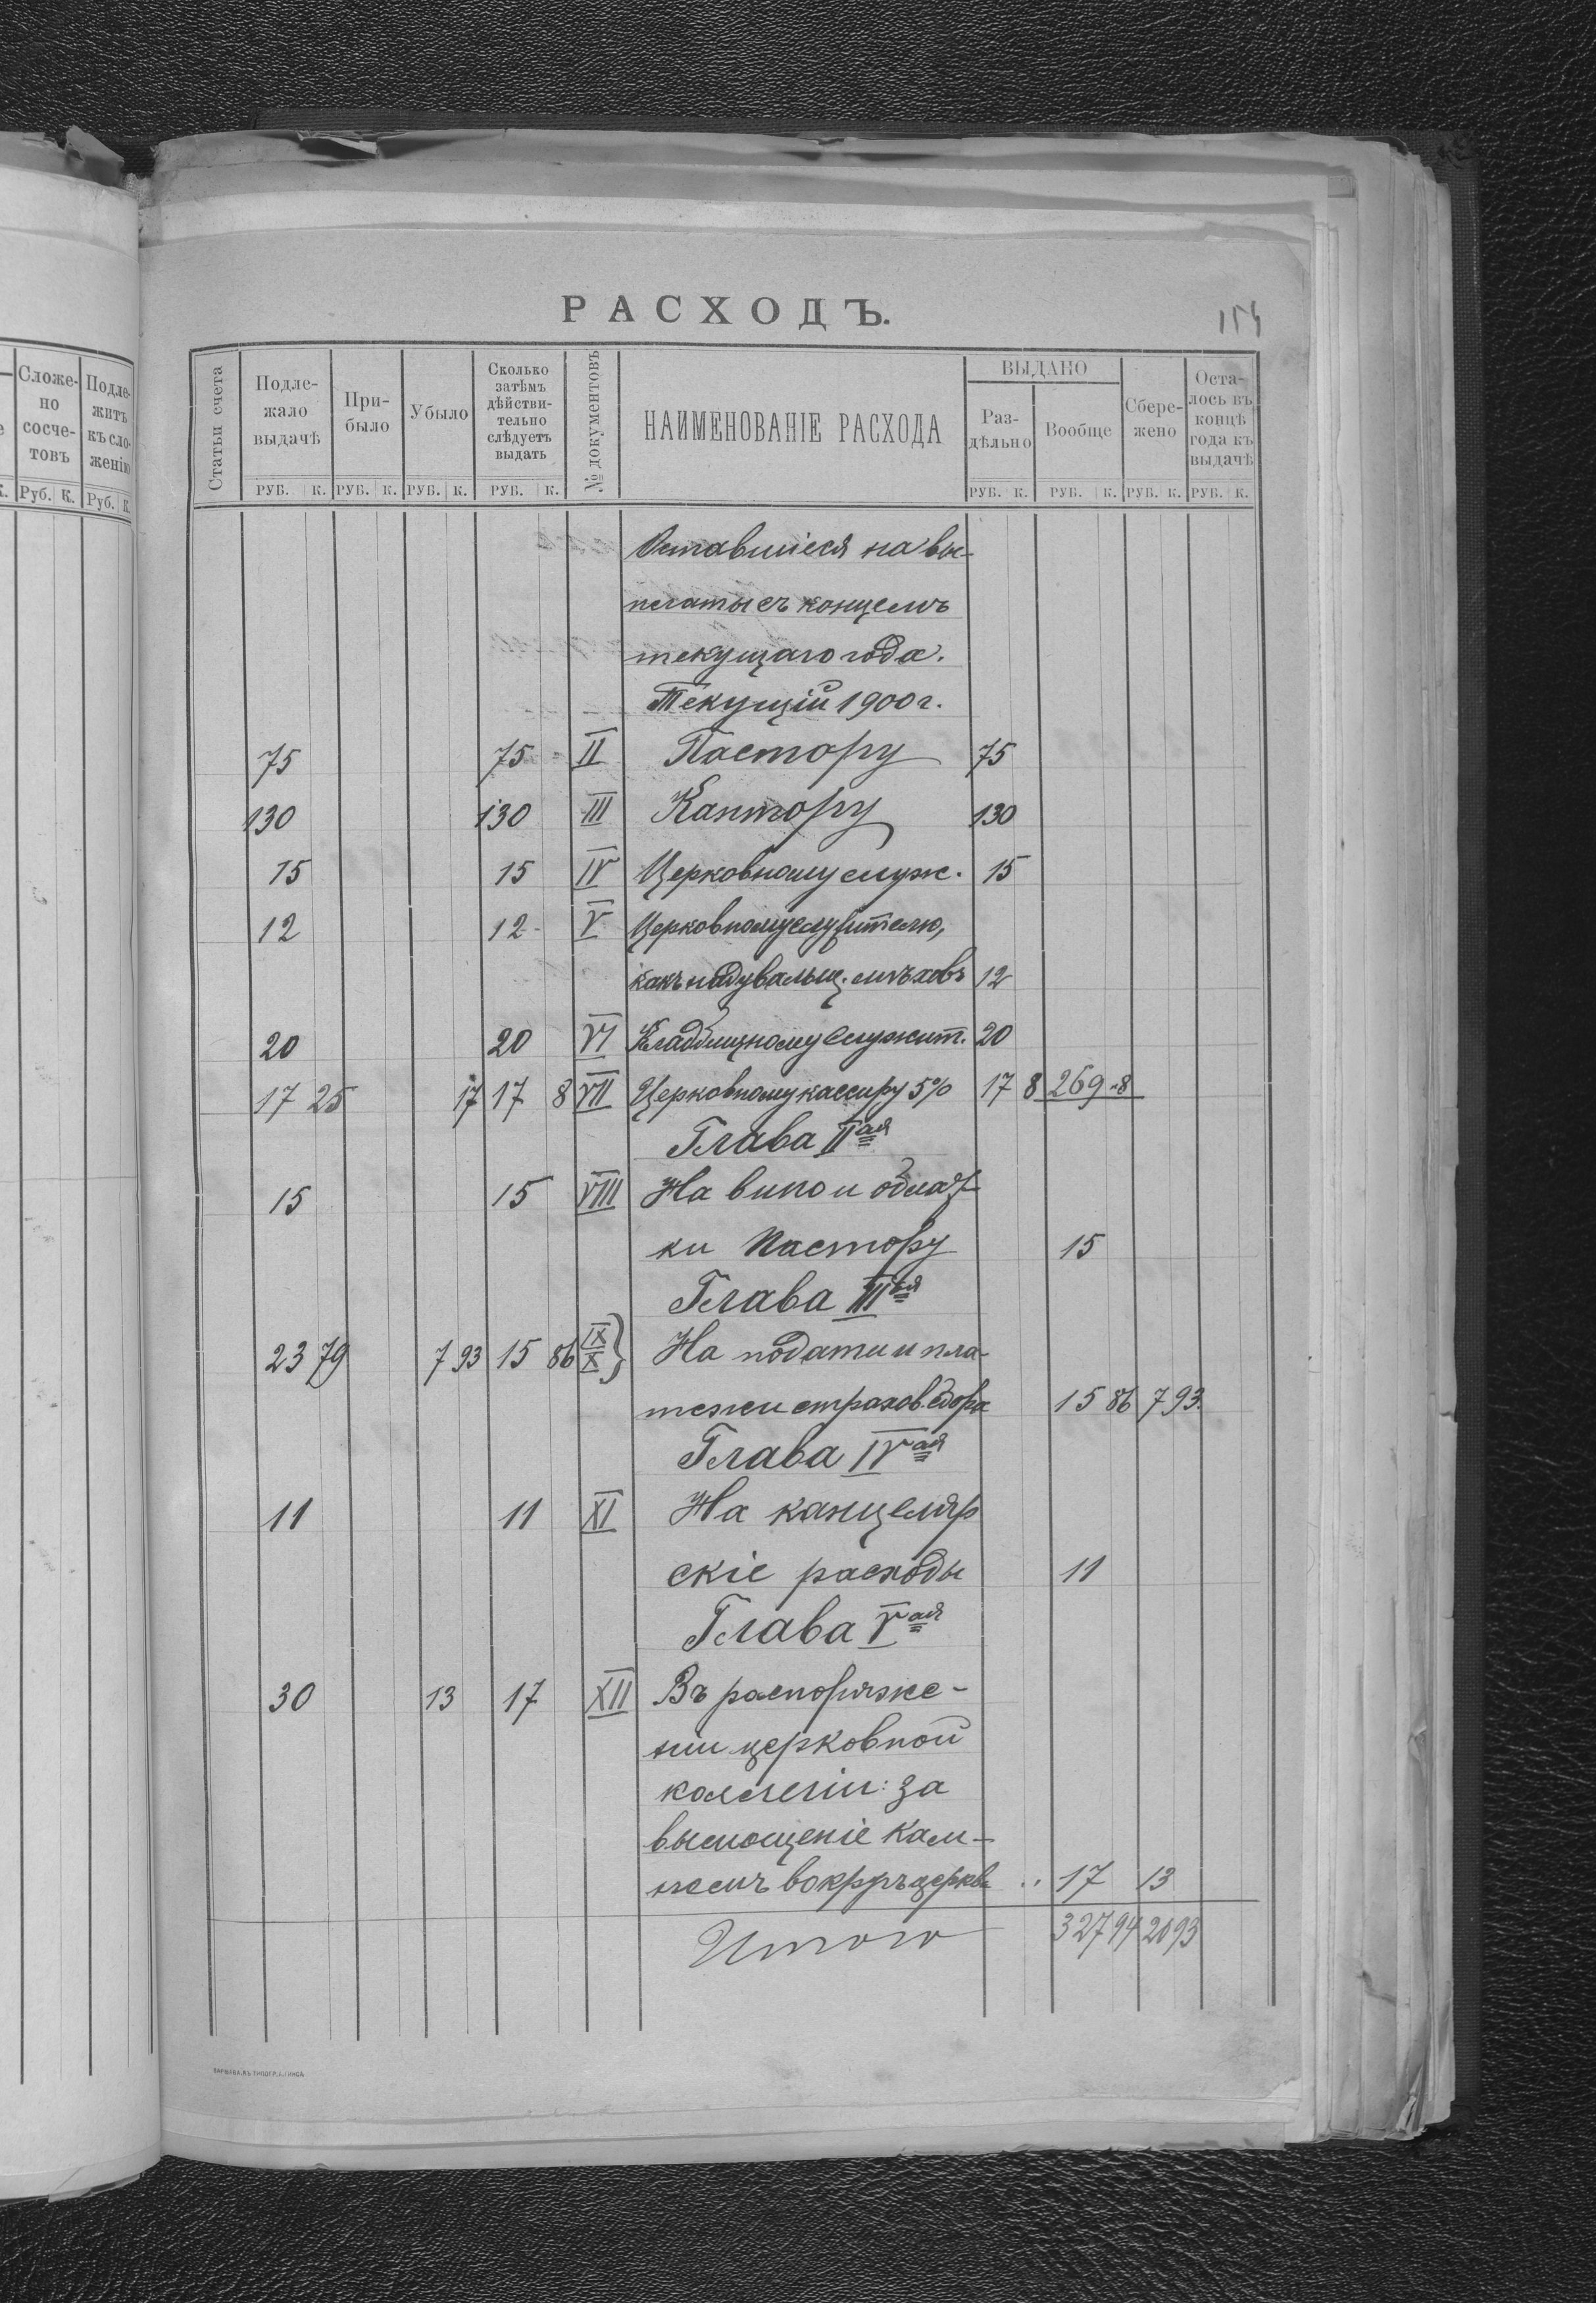 РАСХОДЪ.
154
Сложе- но сосче- товъ
Подле- житъ къ сло- женію
К. Руб. К. Руб. К.
Статьи счета
Подле- жало выдачѣ
При- было
Убыло
Сколько затѣмъ дѣйстви- тельно слѣдуетъ выдать
№ документовъ
НАИМЕНОВАНІЕ РАСХОДА
ВЫДАНО
Раз- дѣльно
Вообще
Сбере- жено
Оста- лось къ концѣ года къ выдачѣ
РУБ. К. РУБ. К. РУБ. К. РУБ. К. РУБ. К. РУБ. К. РУБ. К. РУБ. К.
Оставшіеся на вы-
платы съ концемъ
текущаго года.
Текущій 1900 г.
75 75 II Пастору 75
130 130 III Кантору 130
15 15 IV Церковному служ. 15
12 12 V Церковному служителю,
какъ надувальщ. мѣховъ 12
20 20 VI Кладбищному служит. 20
17 25 17 17 8 VII Церковному кассиру 5% 17 8 269 8
Глава II ая
15 15 VIII На вино и облат-
ки Пастору 15
Глава III ья
23 79 7 93 15 86 IX X } На подати и пла-
тежи страхов. сбора 15 86 7 93.
Глава IV ая
11 11 XI На канцеляр
скіе расходы 11
Глава V ая
30 13 17 XII Въ распоряже-
ніи церковной
коллегіи: за
вымощеніе кам-
немъ вокругъ церкви .. 17 13
Итого 327 94 20 93